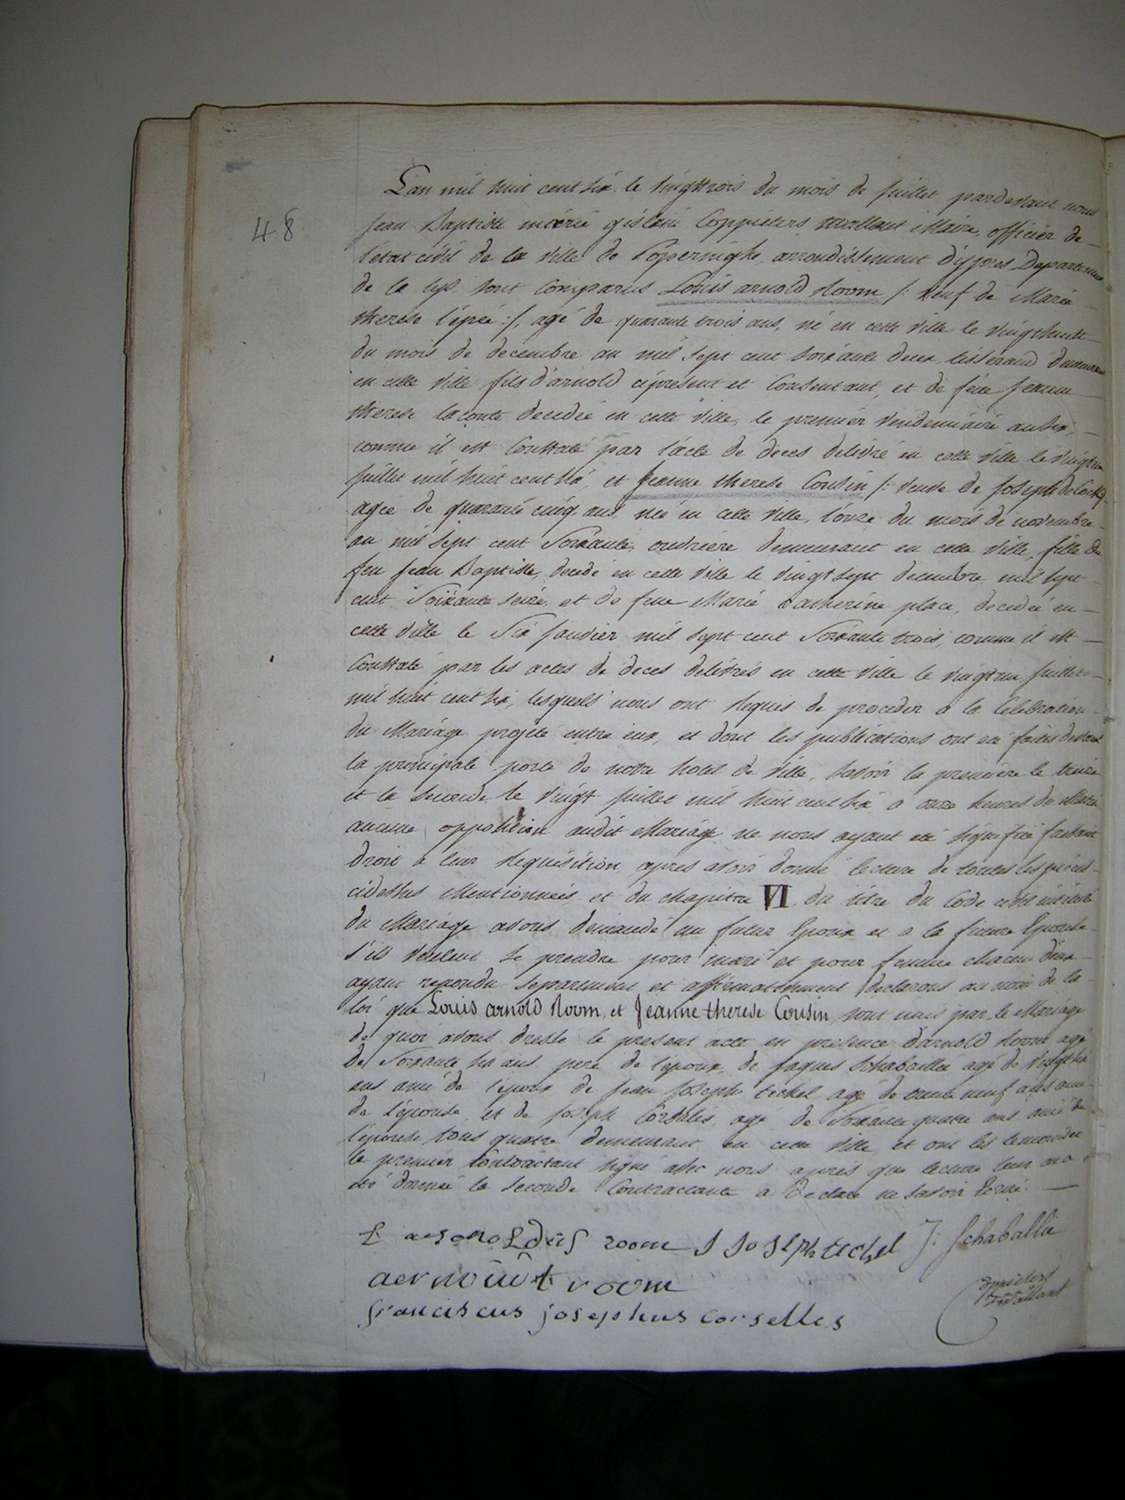 48
L'an mil huit cent six le vingttrois du mois de juillet pardevant nous
Jean Baptiste gislain Coppieters Maire, officier de
l'état civil de la ville de Poperinghe, arrondissement d'ypres, Departement
de la Lys, sont comparus Louis arnold Room /: veuf de Marie
therese :/, agé de quarante trois ans, né en cette ville le vingthuit
du mois de decembre an mil sept cent soixante deux, tisserand demeurant
en cette ville fils d'arnold ciprésent et Consentant, et de feue Jeanne
therese laconte decedée en cette ville, le premier vendemiaire an six,
comme il est Constaté par l'acte de deces delivré en cette ville le
juillet mil huit cent six, et Jeanne therese Cousin /: veuve de Joseph
agée de quarante cinq ans née en cette ville, l'onze du mois de novembre
an mil sept cent Soixante, ouvriere demeurant en cette ville, fille de
feu Jean Baptiste, decedé en cette ville le vingt sept decembre mil sept
cent Soixante seize, et de feue Marie Catherine place, decedée en
cette ville le Six janvier mil sept cent Soixante trois, comme il est
Constaté par les actes de deces delivrés en cette ville le juillet
mil huit cent six, lesquels nous ont requis de proceder a la Celebration
du Mariage projeté entre eux, et dont les publications ont été faites devant
la principale porte de notre hotel de ville, savoir la premiere le treize
et la seconde le vingt juillet mil huit cent six a onze heures du Matin
aucune opposition audit Mariage ne nous ayant été signifiée faisant
droit a leur requisition apres avoir donné lecture de toutes les pieces
cidessus Mentionnées et du chapitre VI du titre du Code civil intitulé
du Mariage avons demandé au futur Epoux et a la future Epouse
s'ils veulent se prendre pour mari et pour femme chacun d'eux
ayant repondu separement et affirmativement declarons au nom de la
loi que Louis arnold Room, et Jeanne therese Cousin sont unis par le Mariage
de quoi avons dressé le present acte en presence d'arnold room agé
de Soixante ans pere de l'epoux, de jaques Schabaillie agé de
ans ami de l'epoux de Jean Joseph techel agé de trente neuf ans ami
de l'épouse, et de joseph Corselis, agé de Soixante quatre ans ami de
l'epouse tous quatre demeurant en cette ville, et ont les temoins et
le premier Contractant signé avec nous apres que lecture leur en a
été donnée la seconde Contractante a Declaré ne savoir Ecrire
room J Joseph techel J: Schaballie
aernoudt room
franciscus josephus corselles